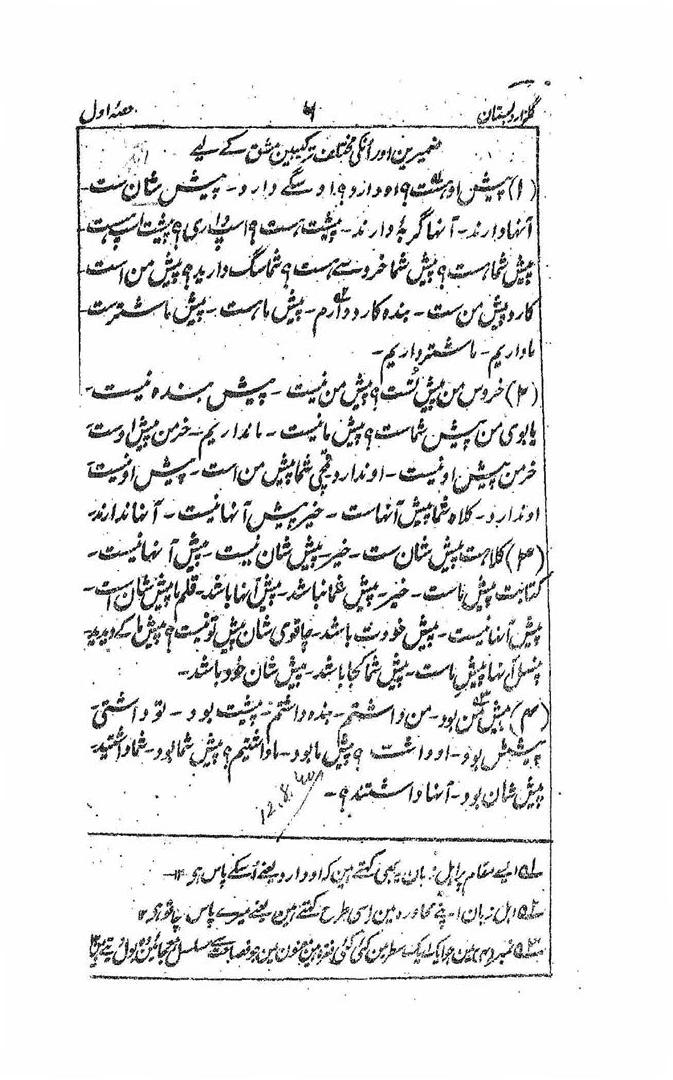 گلزار دبستان ۶ حصۂ اول
ضمیرین اور انکی مختلف ترکیبین مشق کے لیے
(۱) پیش او ہست؟ او دارد؟ او سگے دارد۔ پیش شان ست۔
آنہا دارند۔ آنہا گربہ دارند۔ پیشت ہست؟ اسپ داری؟ پیشت اسپ ہست
پیش شما ہست؟ پیش شما خروسے ہست؟ شما سگ دارید؟ پیش من است
کارد پیش من ست۔ بندہ کارد دارم۔ پیش ما ہست۔ پیش ما شتر ست
ما داریم۔ ما شتر داریم۔
(۲) خروس من پیش تست؟ پیش من نیست۔ پیش بندہ نیست۔
یابوی من پیش شماست؟ پیش ما نیست۔ ما نداریم۔ خر من پیش اوست
خر من پیش او نیست۔ او ندارد۔ قمچی شما پیش من است۔ پیش او نیست
او ندارد۔ کلاہ شما پیش آنہاست۔ خیر پیش آنہا نیست۔ آنہا ندارند۔
(۳) کلاہت پیش شان ست۔ خیر۔ پیش شان نیست۔ پیش آنہا نیست۔
کتابت پیش ماست۔ خیر۔ پیش شما نباشد۔ پیش آنہا باشد۔ قلم ما پیش شان است۔
پیش آنہا نیست۔ پیش خودت باشد۔ چاقوی شان پیش تو نیست؟ پیش ما کے دیدید
پنسل آنہا پیش ماست۔ پیش شما کجا باشد۔ پیش شان خود باشد۔
(۴) پیش من بود۔ من داشتم۔ بندہ داشتم۔ پیشت بود۔ تو داشتی
پیشش بود۔ او داشت؟ پیش ما بود۔ ما داشتیم؟ پیش شما بود۔ شما داشتید۔
پیش شان بود۔ آنہا داشتند؟۔
12.8.40
۱؎ ایسے مقام پر اہل زبان یہ بھی کہتے ہین کہ او دارد یعنے اسکے پاس ہی ۱۲
۲؎ اہل زبان اپنے محاورہ مین اسی طرح کہتے ہین یعنے میرے پاس چاقو ہی ۱۲
۳؎ نمبر (۴) مین جو ایک ایک سطر مین کئی کئی فقرہ ہین